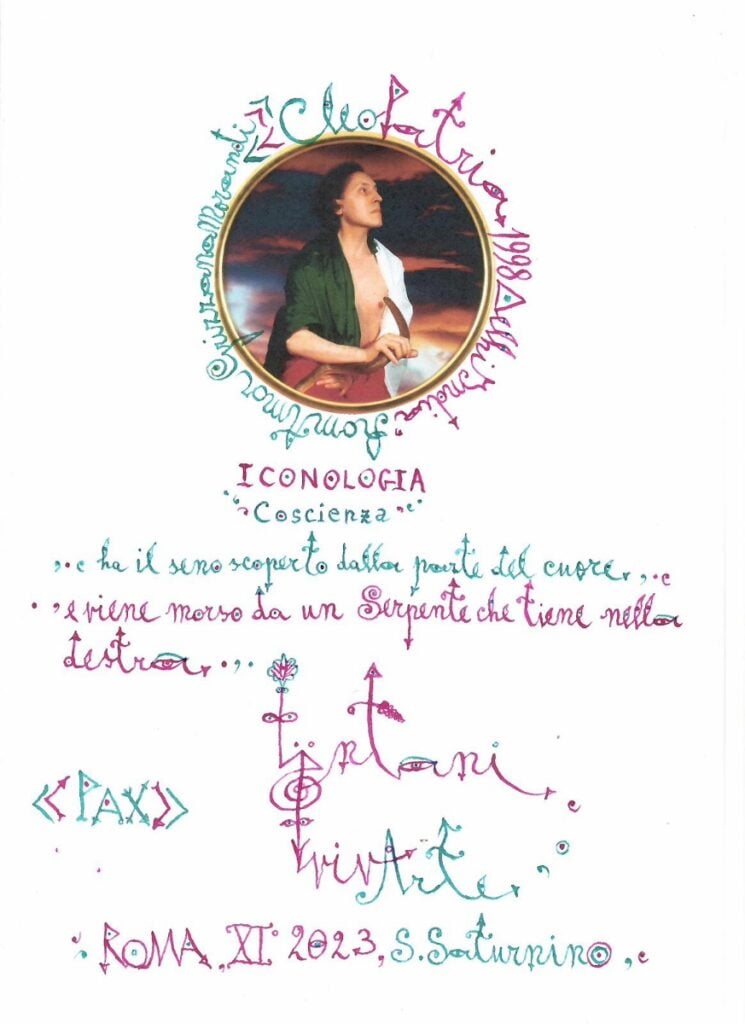 CleoPatria, 1998 Delhi India
Morandi
ICONOLOGIA
"Coscienza"
ha il seno scoperto dalla parte del cuore,
e viene morso da un Serpente che tiene nella
destra.
<<PAX>>
vivArte.
ROMA, XI° 2023, S. Saturnino,